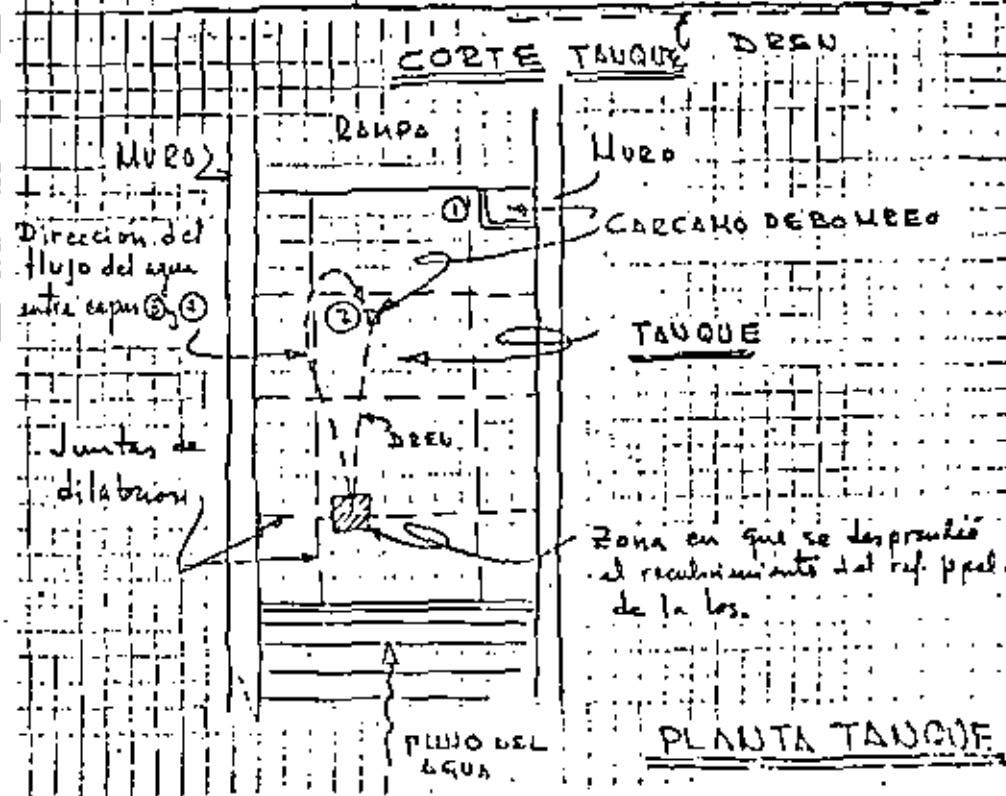 CORTE TANQUE
DREN
RAMPA
MURO
MURO
①
CARCAMO DE BOMBEO
Direccion del
flujo del agua
entre capas ③ y ②
②
TANQUE
DREN
Juntas de
dilatacion
Zona en que se desprendió
el recubrimiento del ref. ppal.
de la los.
FLUJO DEL
AGUA
PLANTA TANQUE